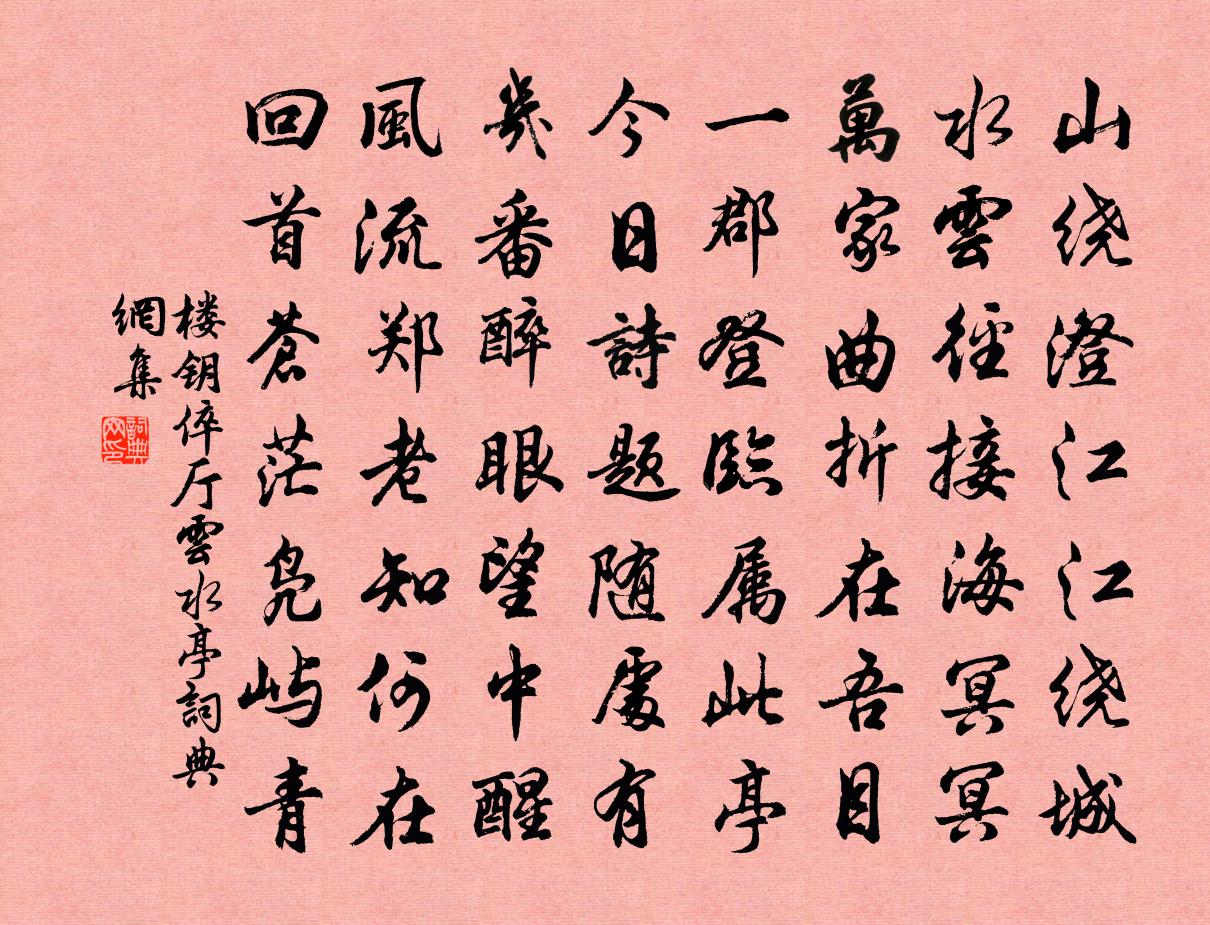 山绕澄江江绕城
水雲径接海冥冥
萬家曲折在吾目
一郡登臨属此亭
今日詩题随處有
幾番醉眼望中醒
風流郑老知何在
回首蒼茫凫屿青
楼钥倅厅雲水亭詞典
網集
詞典
网印